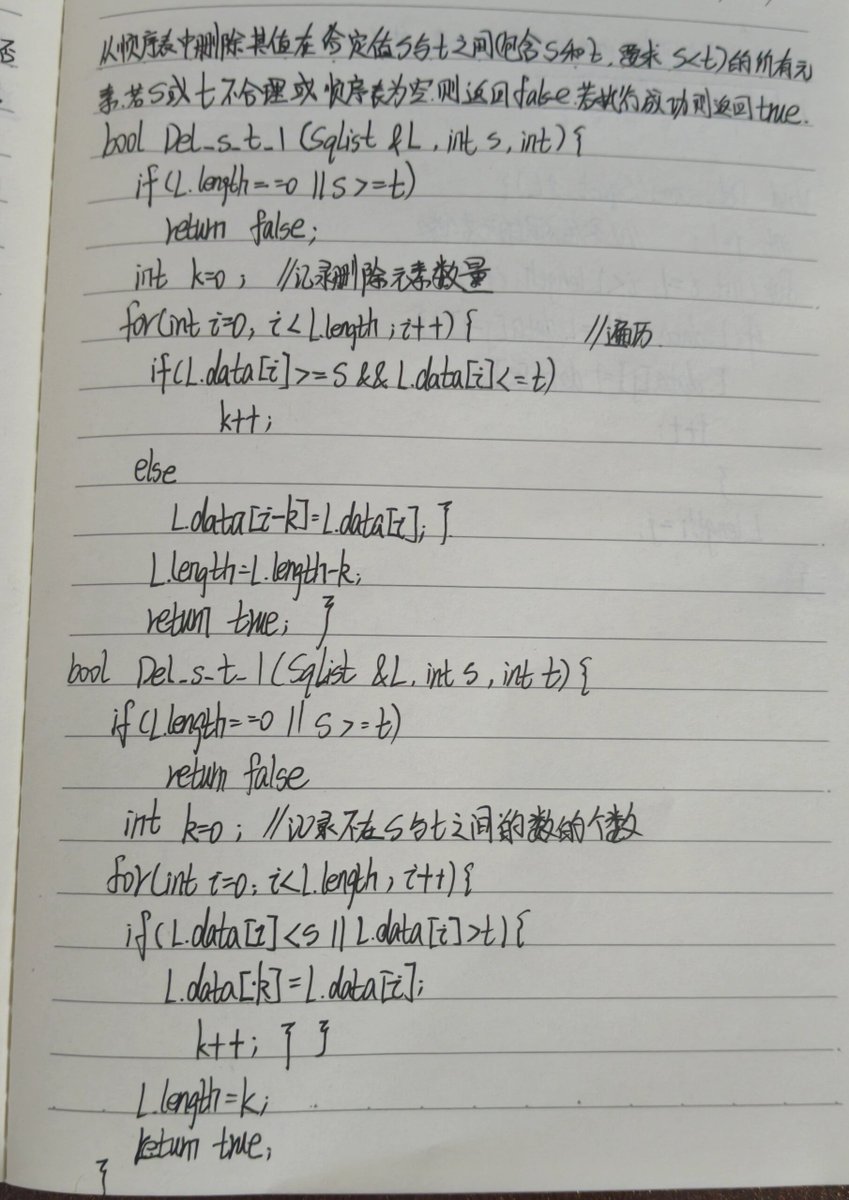 从顺序表中删除其值在给定值s与t之间(包含s和t,要求 s<t)的所有元
素.若s或t不合理或顺序表为空.则返回false.若执行成功则返回true.
bool Del_s_t_1 (Sqlist &L, int s, int) {
if(L.length==0 || s>=t)
return false;
int k=0; //记录删除元素数量
for(int i=0; i<L.length; i++) { //遍历
if(L.data[i]>=s && L.data[i]<=t)
k++;
else
L.data[i-k]=L.data[i]; }
L.length=L.length-k;
return true; }
bool Del_s_t_1 (SqList &L, int s, int t) {
if(L.length==0 || s>=t)
return false
int k=0; //记录不在s与t之间的数的个数
for(int i=0; i<L.length; i++) {
if(L.data[i]<s || L.data[i]>t) {
L.data[k]=L.data[i];
k++; } }
L.length=k;
return true;
}